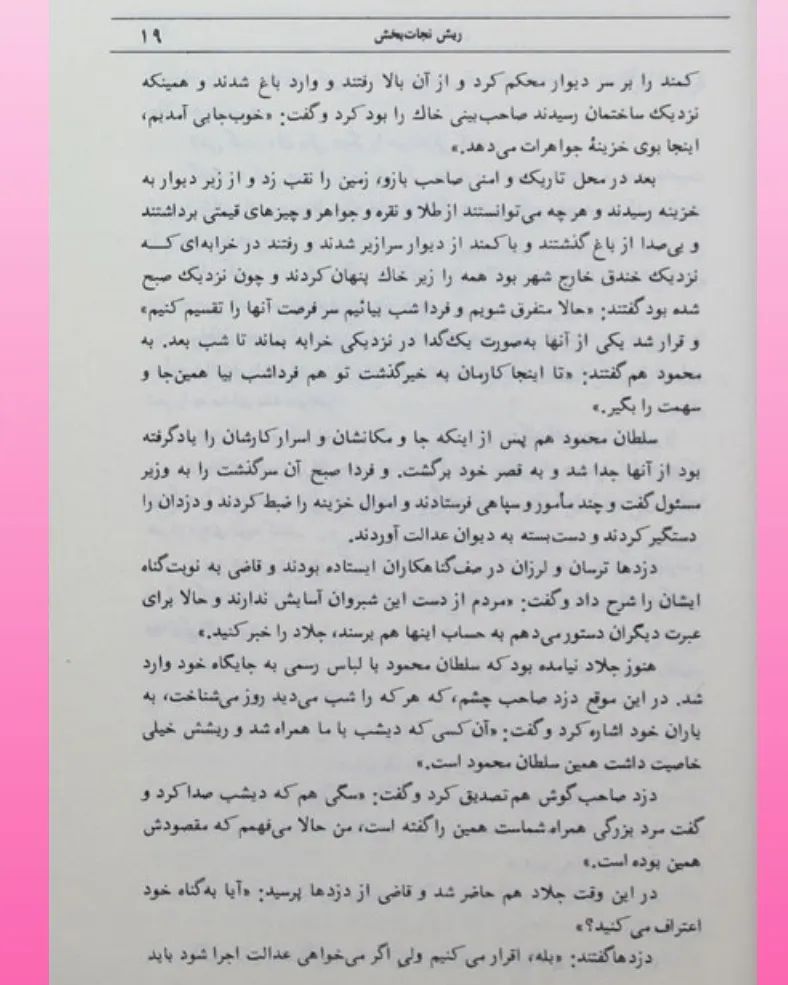 ریش نجات‌بخش
۱۹
کمند را بر سر دیوار محکم کرد و از آن بالا رفتند و وارد باغ شدند و همینکه
نزدیک ساختمان رسیدند صاحب‌بینی خاك را بود کرد وگفت: «خوب‌جایی آمدیم،
اینجا بوی خزینهٔ جواهرات می‌دهد.»
بعد در محل تاریک و امنی صاحب بازو، زمین را نقب زد و از زیر دیوار به
خزینه رسیدند و هر چه می‌توانستند از طلا و نقره و جواهر و چیزهای قیمتی برداشتند
و بی‌صدا از باغ گذشتند و با کمند از دیوار سرازیر شدند و رفتند در خرابه‌ای کــه
نزدیک خندق خارج شهر بود همه را زیر خاك پنهان کردند و چون نزدیک صبح
شده بود گفتند: «حالا متفرق شویم و فردا شب بیائیم سر فرصت آنها را تقسیم کنیم»
و قرار شد یکی از آنها به‌صورت یک‌گدا در نزدیکی خرابه بماند تا شب بعد. به
محمود هم گفتند: «تا اینجا کارمان به خیر گذشت تو هم فرداشب بیا همین‌جا و
سهمت را بگیر.»
سلطان محمود هم پس از اینکه جا و مکانشان و اسرار کارشان را یادگرفته
بود از آنها جدا شد و به قصر خود برگشت. و فردا صبح آن سرگذشت را به وزیر
مسئول گفت و چند مأمور و سپاهی فرستادند و اموال خزینه را ضبط کردند و دزدان را
دستگیر کردند و دست‌بسته به دیوان عدالت آوردند.
دزدها ترسان و لرزان در صف‌گناهکاران ایستاده بودند و قاضی به نوبت‌گناه
ایشان را شرح داد وگفت: «مردم از دست این شبروان آسایش ندارند و حالا برای
عبرت دیگران دستور می‌دهم به حساب اینها هم برسند، جلاد را خبر کنید.»
هنوز جلاد نیامده بود که سلطان محمود با لباس رسمی به جایگاه خود وارد
شد. در این موقع دزد صاحب چشم، که هر که را شب می‌دید روز می‌شناخت، به
یاران خود اشاره کرد وگفت: «آن کسی که دیشب با ما همراه شد و ریشش خیلی
خاصیت داشت همین سلطان محمود است.»
دزد صاحب‌گوش هم تصدیق کرد وگفت: «سگی هم که دیشب صدا کرد و
گفت مرد بزرگی همراه شماست همین را گفته است، من حالا می‌فهمم که مقصودش
همین بوده است.»
در این وقت جلاد هم حاضر شد و قاضی از دزدها پرسید: «آیا به‌گناه خود
اعتراف می کنید؟»
دزدها گفتند: «بله، اقرار می کنیم ولی اگر می‌خواهی عدالت اجرا شود باید